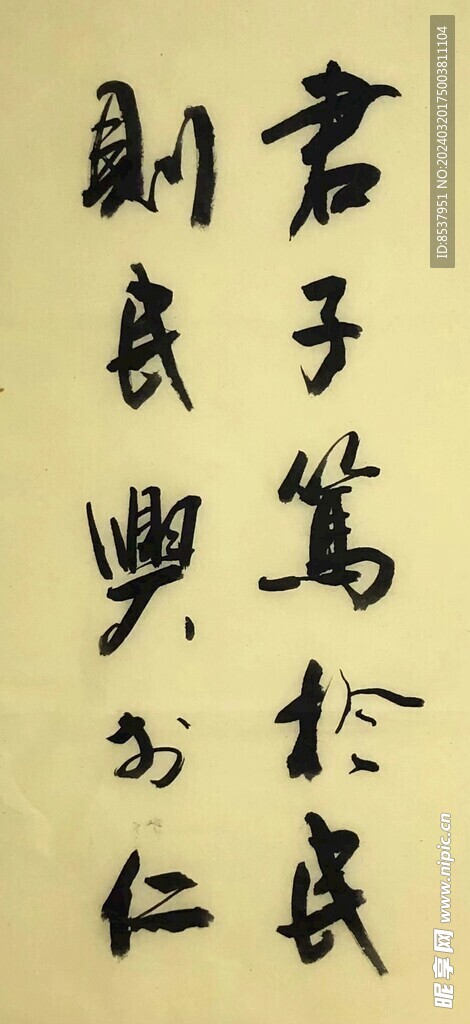 君子篤於民
則民興於仁
ID:8537951 NO:20240320175003811104
昵享网 www.nipic.cn